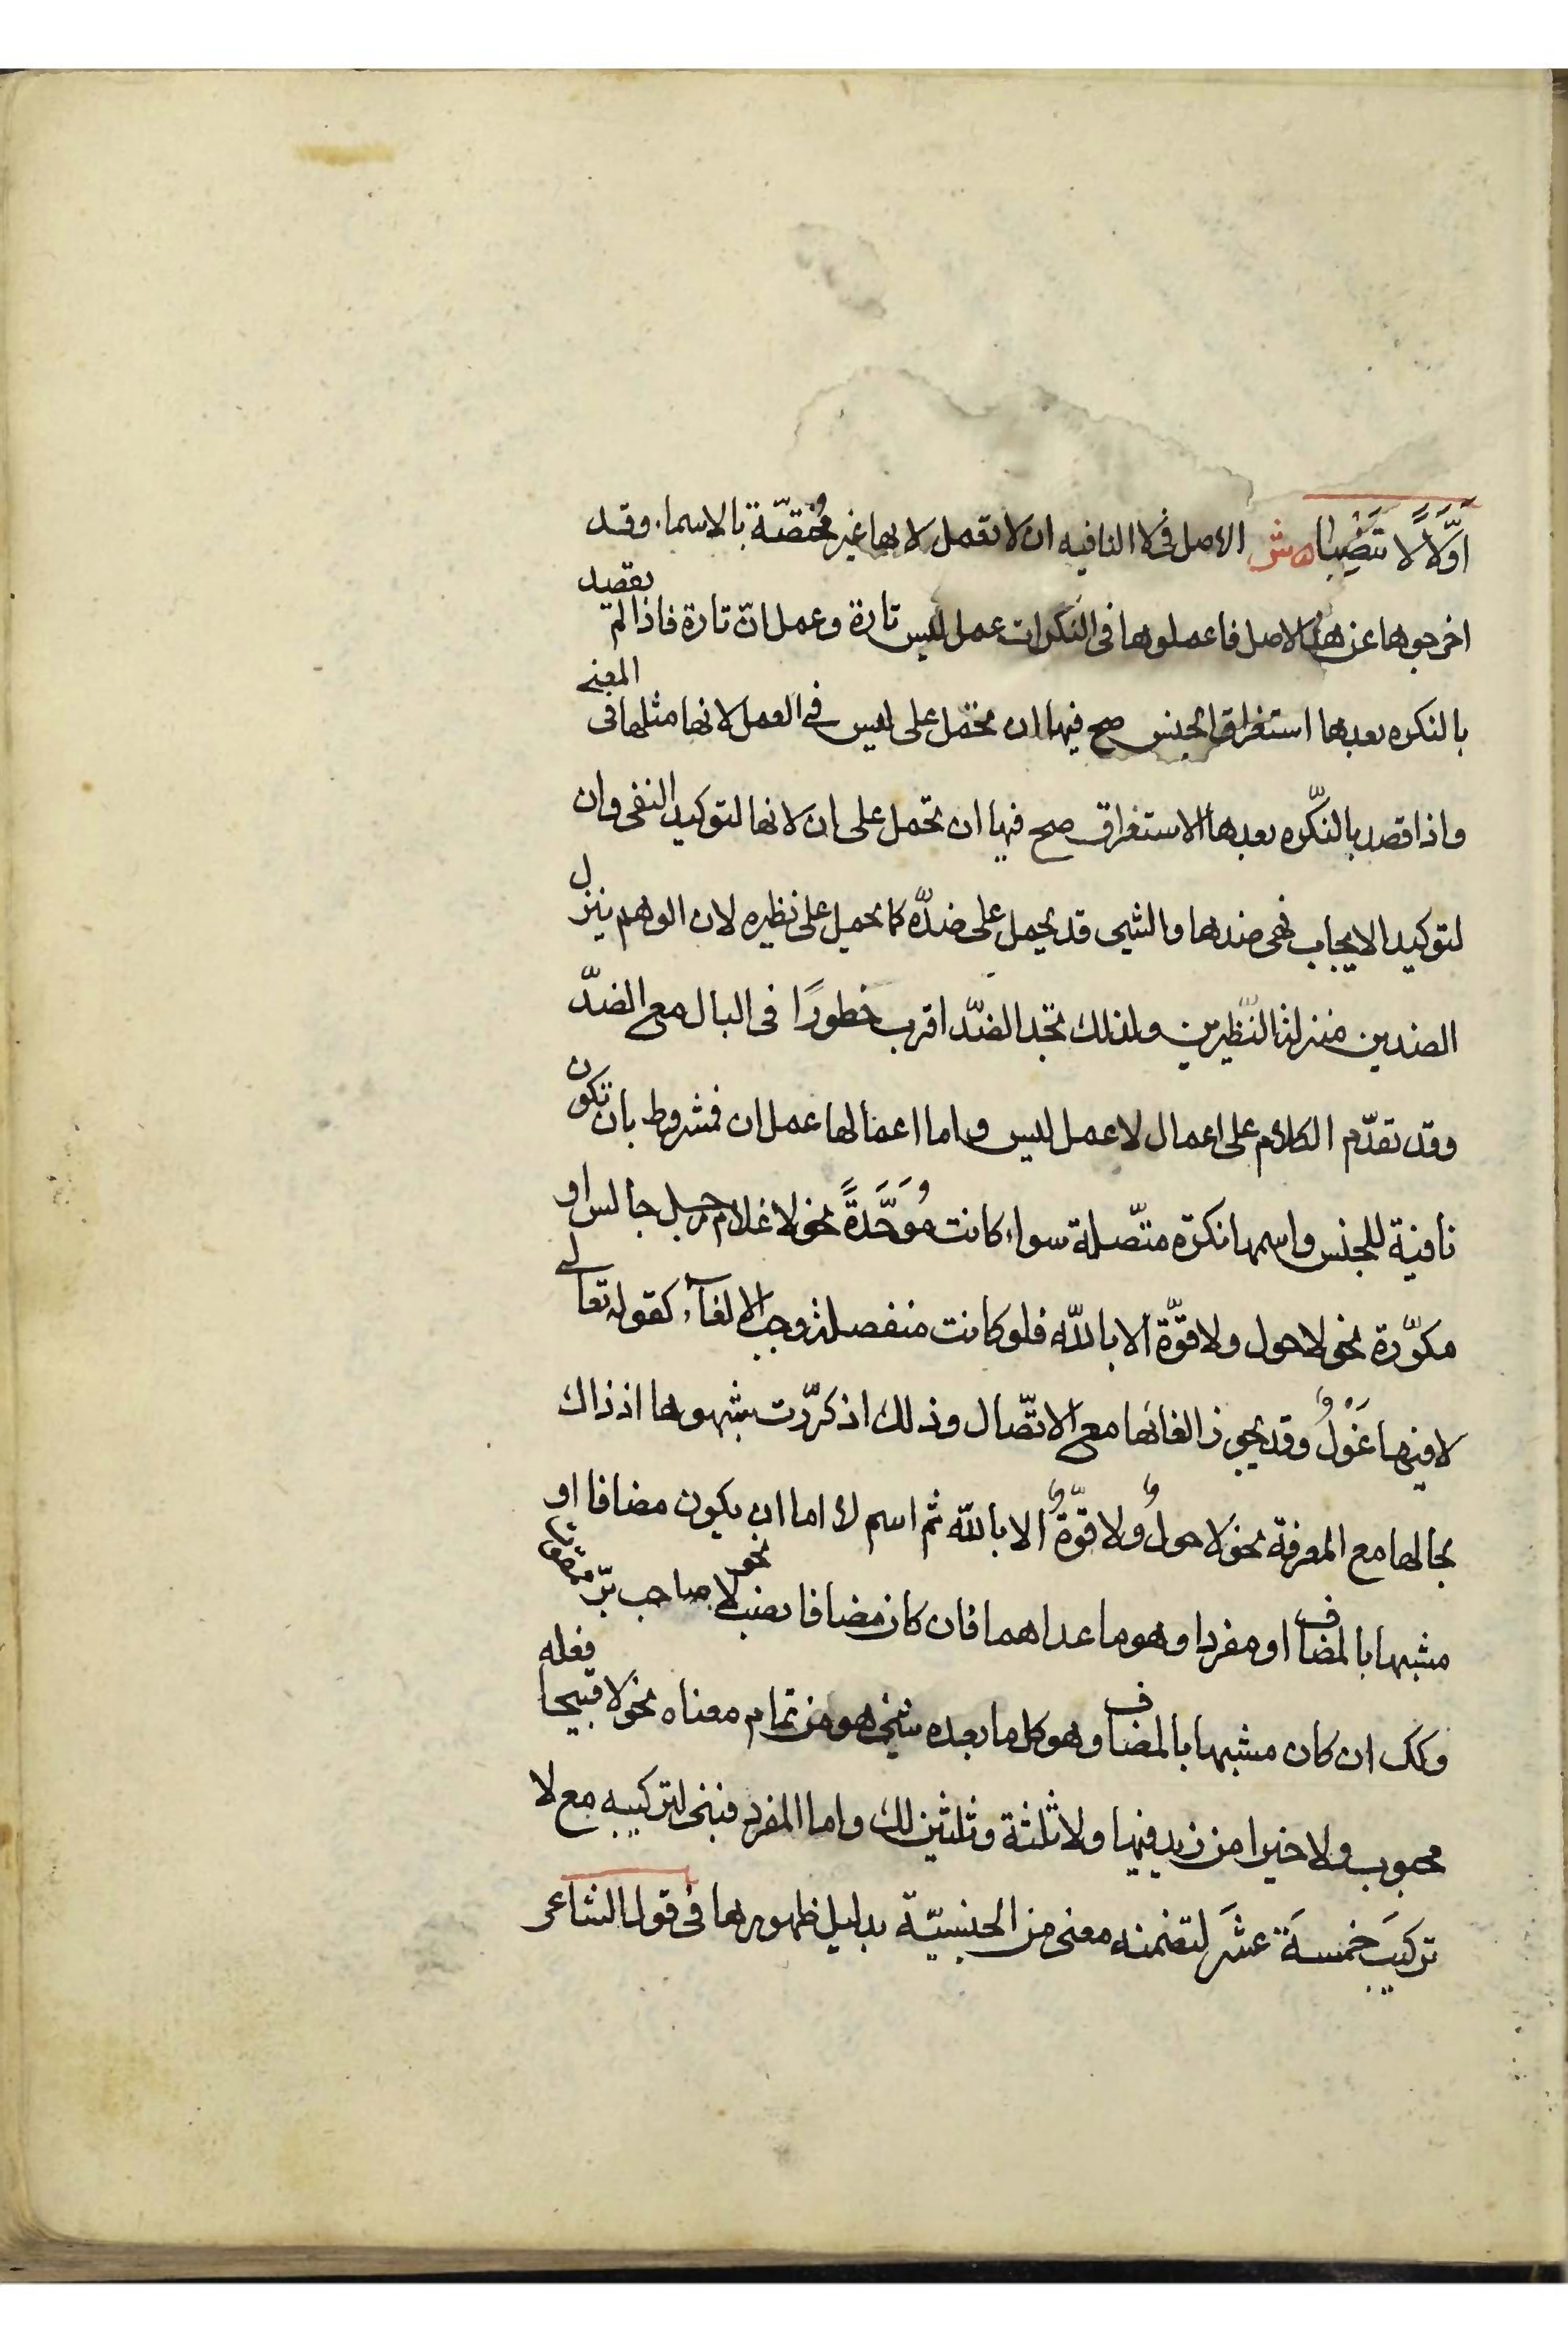 اَوَّلًا لا تَنْصِبا ه ش الاصل فى لا النافيه ان لا تعمل لانها غير مُختصّة بالاسماء وقد
اخرجوها عن هذا الاصل فاعملوها فى النكرات عمل ليس تارة وعمل انّ تارة فاذا لم يقصد
بالنكره بعدها استغراق الجنس صح فيها ان تحمل على ليس فى العمل لانها مثلها فى المعنى
واذا قصد بالنّكره بعدها الاستغراق صح فيها ان تحمل على ان لانها لتوكيد النفى وان
لتوكيد الايجاب فهى ضدها والشيى قد يحمل على ضدّه كما يحمل على نظيره لان الوهم ينزل
الضدين منزلة النّظيرين ولذلك تجد الضّد اقرب خطورًا فى البال مع الضدّ
وقد تقدّم الكلام على اعمال لا عمل ليس واما اعمالها عمل ان فمشروط بان تكون
نافية للجنس واسمها نكرة متّصلة سواء كانت مُوَحَّدَةً نحو لا غلام رجل جالس او
مكرّرة نحو لا حول ولا قوّة الا بالله فلو كانت منفصلة وجب الالغآء كقوله تعالى
لا فيها غَوْلٌ وقد يجوز الغائها مع الاتّصال وذلك اذ كرّرت شبهوها اذ ذاك
بحالها مع المعرفة نحو لا حولٌ ولا قوّةٌ الا بالله ثم اسم لا اما ان يكون مضافا او
مشبها بالمضاف او مفردا وهو ما عداهما فان كان مضافا نصب نحو لا صاحب برّ ممقوت
وكك ان كان مشبها بالمضاف وهو كل ما بعده شيى هو من تمام معناه نحو لا قبيحا فعله
محبوب ولا خيرا من زيد فيها ولا ثلثة وثلثين لك واما المفرد فبنى لتركيبه مع لا
تركيبَ خمسةَ عشَر لتضمنه معنى من الجنسيّة بدليل ظهورها فى قول الشاعر